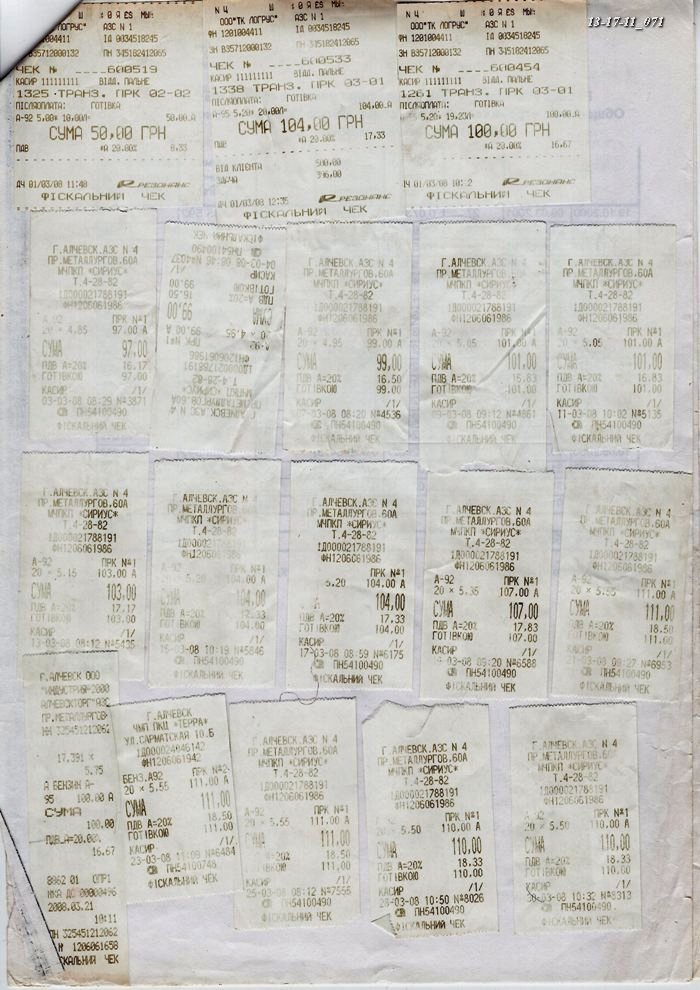 13-17-11_071
ООО"ТК ЛОГРУС" АЗС N 1
ІД 0034518245
ЗН В35712000132 ПН 315182412065
ЧЕК № ____600519
КАСИР 111111111 ВІДД. ПАЛЬНЕ
1325 ТРАНЗ. ПРК 02-02
ПІСЛЯОПЛАТА: ГОТІВКА
А-92 5,00х 10,00л 50,00 А
СУМА 50,00 ГРН
ПДВ *А 20.00% 8,33
ДЧ 01/03/08 11:48 РЕЗОНАНС
ФІСКАЛЬНИЙ ЧЕК
N Ч
ООО"ТК ЛОГРУС" АЗС N 1
ФН 1201004411 ІД 0034518245
ЗН В35712000132 ПН 315182412065
ЧЕК № ____600533
КАСИР 111111111 ВІДД. ПАЛЬНЕ
1338 ТРАНЗ. ПРК 03-01
ПІСЛЯОПЛАТА: ГОТІВКА
А-95 5,20х 20,00л 104,00 А
СУМА 104,00 ГРН
ПДВ *А 20.00% 17,33
ВІД КЛІЄНТА 500,00
ЗДАЧА 396,00
ДЧ 01/03/08 12:35 РЕЗОНАНС
ФІСКАЛЬНИЙ ЧЕК
N Ч
ООО"ТК ЛОГРУС" АЗС N 1
ФН 1201004411 ІД 0034518245
ЗН В35712000132 ПН 315182412065
ЧЕК № ____600454
КАСИР 111111111 ВІДД. ПАЛЬНЕ
1261 ТРАНЗ. ПРК 03-01
ПІСЛЯОПЛАТА: ГОТІВКА
А-95 5,20х 19,23л 100,00 А
СУМА 100,00 ГРН
ПДВ *А 20.00% 16,67
ДЧ 01/03/08 РЕЗОНАНС
ФІСКАЛЬНИЙ ЧЕК
Г.АЛЧЕВСК.АЗС N 4
ПР.МЕТАЛЛУРГОВ,60А
МЧПКП *СИРИУС*
Т.4-28-82
ІД000021788191
ФН1206061986
А-92 ПРК №1
20 × 4.85 97.00 А
СУМА 97,00
ПДВ А=20% 16.17
ГОТІВКОЮ 97.00
КАСИР /1/
03-03-08 08:29 №3871
ПН54100490
ФІСКАЛЬНИЙ ЧЕК
Г.АЛЧЕВСК.АЗС N 4
ПР.МЕТАЛЛУРГОВ,60А
МЧПКП *СИРИУС*
Т.4-28-82
ІД000021788191
ФН1206061986
А-92 ПРК №1
20 × 4.95 99.00 А
СУМА 99,00
ПДВ А=20% 16.50
ГОТІВКОЮ 99.00
КАСИР /1/
04-03-08 08:46 №4033
ПН54100490
ФІСКАЛЬНИЙ ЧЕК
Г.АЛЧЕВСК.АЗС N 4
ПР.МЕТАЛЛУРГОВ,60А
МЧПКП *СИРИУС*
Т.4-28-82
ІД000021788191
ФН1206061986
А-92 ПРК №1
20 × 4.95 99.00 А
СУМА 99,00
ПДВ А=20% 16.50
ГОТІВКОЮ 99.00
КАСИР /1/
07-03-08 08:20 №4536
ПН54100490
ФІСКАЛЬНИЙ ЧЕК
Г.АЛЧЕВСК.АЗС N 4
ПР.МЕТАЛЛУРГОВ,60А
МЧПКП *СИРИУС*
Т.4-28-82
ІД000021788191
ФН1206061986
А-92 ПРК №1
20 × 5.05 101.00 А
СУМА 101,00
ПДВ А=20% 16.83
ГОТІВКОЮ 101.00
КАСИР /1/
09-03-08 09:12 №4861
ПН54100490
ФІСКАЛЬНИЙ ЧЕК
Г.АЛЧЕВСК.АЗС N 4
ПР.МЕТАЛЛУРГОВ,60А
МЧПКП *СИРИУС*
Т.4-28-82
ІД000021788191
ФН1206061986
А-92 ПРК №1
20 × 5.05 101.00 А
СУМА 101,00
ПДВ А=20% 16.83
ГОТІВКОЮ 101.00
КАСИР /1/
11-03-08 10:02 №5135
ПН54100490
ФІСКАЛЬНИЙ ЧЕК
Г.АЛЧЕВСК.АЗС N 4
ПР.МЕТАЛЛУРГОВ,60А
МЧПКП *СИРИУС*
Т.4-28-82
ІД000021788191
ФН1206061986
А-92 ПРК №1
20 × 5.15 103.00 А
СУМА 103,00
ПДВ А=20% 17.17
ГОТІВКОЮ 103.00
КАСИР /1/
13-03-08 08:12 №5435
Г.АЛЧЕВСК.АЗС N 4
ПР.МЕТАЛЛУРГОВ,60А
МЧПКП *СИРИУС*
Т.4-28-82
ІД000021788191
ФН1206061986
А-92 ПРК №1
20 × 5.20 104.00 А
СУМА 104,00
ПДВ А=20% 17.33
ГОТІВКОЮ 104.00
КАСИР /1/
15-03-08 10:19 №5846
ПН54100490
ФІСКАЛЬНИЙ ЧЕК
Г.АЛЧЕВСК.АЗС N 4
ПР.МЕТАЛЛУРГОВ,60А
МЧПКП *СИРИУС*
Т.4-28-82
ІД000021788191
ФН1206061986
ПРК №1
5.20 104.00 А
104,00
ПДВ А=20% 17.33
ГОТІВКОЮ 104.00
КАСИР /1/
17-03-08 08:59 №6175
ПН54100490
ФІСКАЛЬНИЙ ЧЕК
Г.АЛЧЕВСК.АЗС N 4
ПР.МЕТАЛЛУРГОВ,60А
МЧПКП *СИРИУС*
Т.4-28-82
ІД000021788191
ФН1206061986
А-92 ПРК №1
20 × 5.35 107.00 А
СУМА 107,00
ПДВ А=20% 17.83
ГОТІВКОЮ 107.00
КАСИР /1/
19-03-08 09:20 №6588
ПН54100490
ФІСКАЛЬНИЙ ЧЕК
Г.АЛЧЕВСК.АЗС N 4
ПР.МЕТАЛЛУРГОВ,60А
МЧПКП *СИРИУС*
Т.4-28-82
ІД000021788191
ФН1206061986
А-92 ПРК №1
20 × 5.55 111.00 А
СУМА 111,00
ПДВ А=20% 18.50
ГОТІВКОЮ 111.00
КАСИР /1/
21-03-08 08:27 №6953
ПН54100490
ФІСКАЛЬНИЙ ЧЕК
Г.АЛЧЕВСК ООО
"ИНДУСТРИЯ-2000
АЛЧЕВСКТОРГ"АЗС
ПР.МЕТАЛЛУРГОВ
НН 325451212062
17.391 ×
5.75
А БЕНЗИН А-
95 100.00 А
СУМА
100.00
ПДВ.А=20.00%
16.67
8862 01 ОПР1
НКА ДС 00000496
2008.03.21
10:11
ПН 325451212062
1206061658
ФІСКАЛЬНИЙ ЧЕК
Г.АЛЧЕВСК
ЧМП ПКЦ *ТЕРРА*
УЛ.САРМАТСКАЯ 10.Б
ІД000024846142
ФН1206061942
БЕНЗ.А92 ПРК №2
20 × 5.55 111.00 А
СУМА 111,00
ПДВ А=20% 18.50
ГОТІВКОЮ 111.00
КАСИР /1/
23-03-08 11:09 №6484
ФІСКАЛЬНИЙ ЧЕК
Г.АЛЧЕВСК.АЗС N 4
ПР.МЕТАЛЛУРГОВ,60А
МЧПКП *СИРИУС*
Т.4-28-82
ІД000021788191
ФН1206061986
А-92 ПРК №1
20 × 5.55 111.00 А
СУМА 111,00
=20% 18.50
ГОТІВКОЮ 111.00
КАСИР /1/
25-03-08 08:12 №7555
ПН54100490
ФІСКАЛЬНИЙ ЧЕК
Г.АЛЧЕВСК.АЗС N 4
ПР.МЕТАЛЛУРГОВ,60А
МЧПКП *СИРИУС*
Т.4-28-82
ІД000021788191
ФН1206061986
А-92 ПРК №1
20 × 5.50 110.00 А
СУМА 110,00
ПДВ А=20% 18.33
ГОТІВКОЮ 110.00
КАСИР /1/
28-03-08 10:50 №8026
ПН54100490
ФІСКАЛЬНИЙ ЧЕК
Г.АЛЧЕВСК.АЗС N 4
ПР.МЕТАЛЛУРГОВ,60А
МЧПКП *СИРИУС*
Т.4-28-82
ІД000021788191
ФН1206061986
А-92 ПРК №1
20 × 5.50 110.00 А
СУМА 110,00
ПДВ А=20% 18.33
ГОТІВКОЮ 110.00
КАСИР /1/
30-03-08 10:32 №8313
ПН54100490
ФІСКАЛЬНИЙ ЧЕК